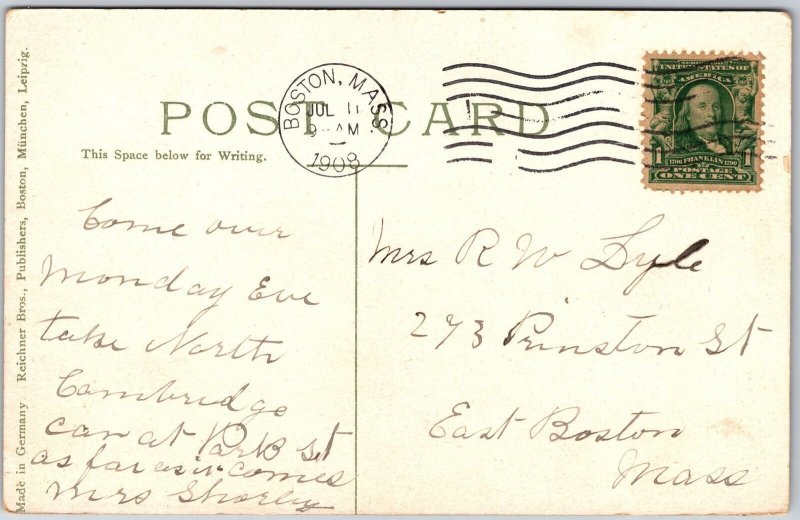 POST CARD
This Space below for Writing.
BOSTON, MASS.
JUL 11
9 - AM
1908
UNITED STATES OF
AMERICA
1706 FRANKLIN 1790
POSTAGE
1 ONE CENT 1
Made in Germany Reichner Bros., Publishers, Boston, München, Leipzig.
Come over
Monday Eve
take North
Cambridge
car at Park St
as far as it comes
Mrs Shorley
Mrs R W Lyle
273 Prinston St
East Boston
Mass